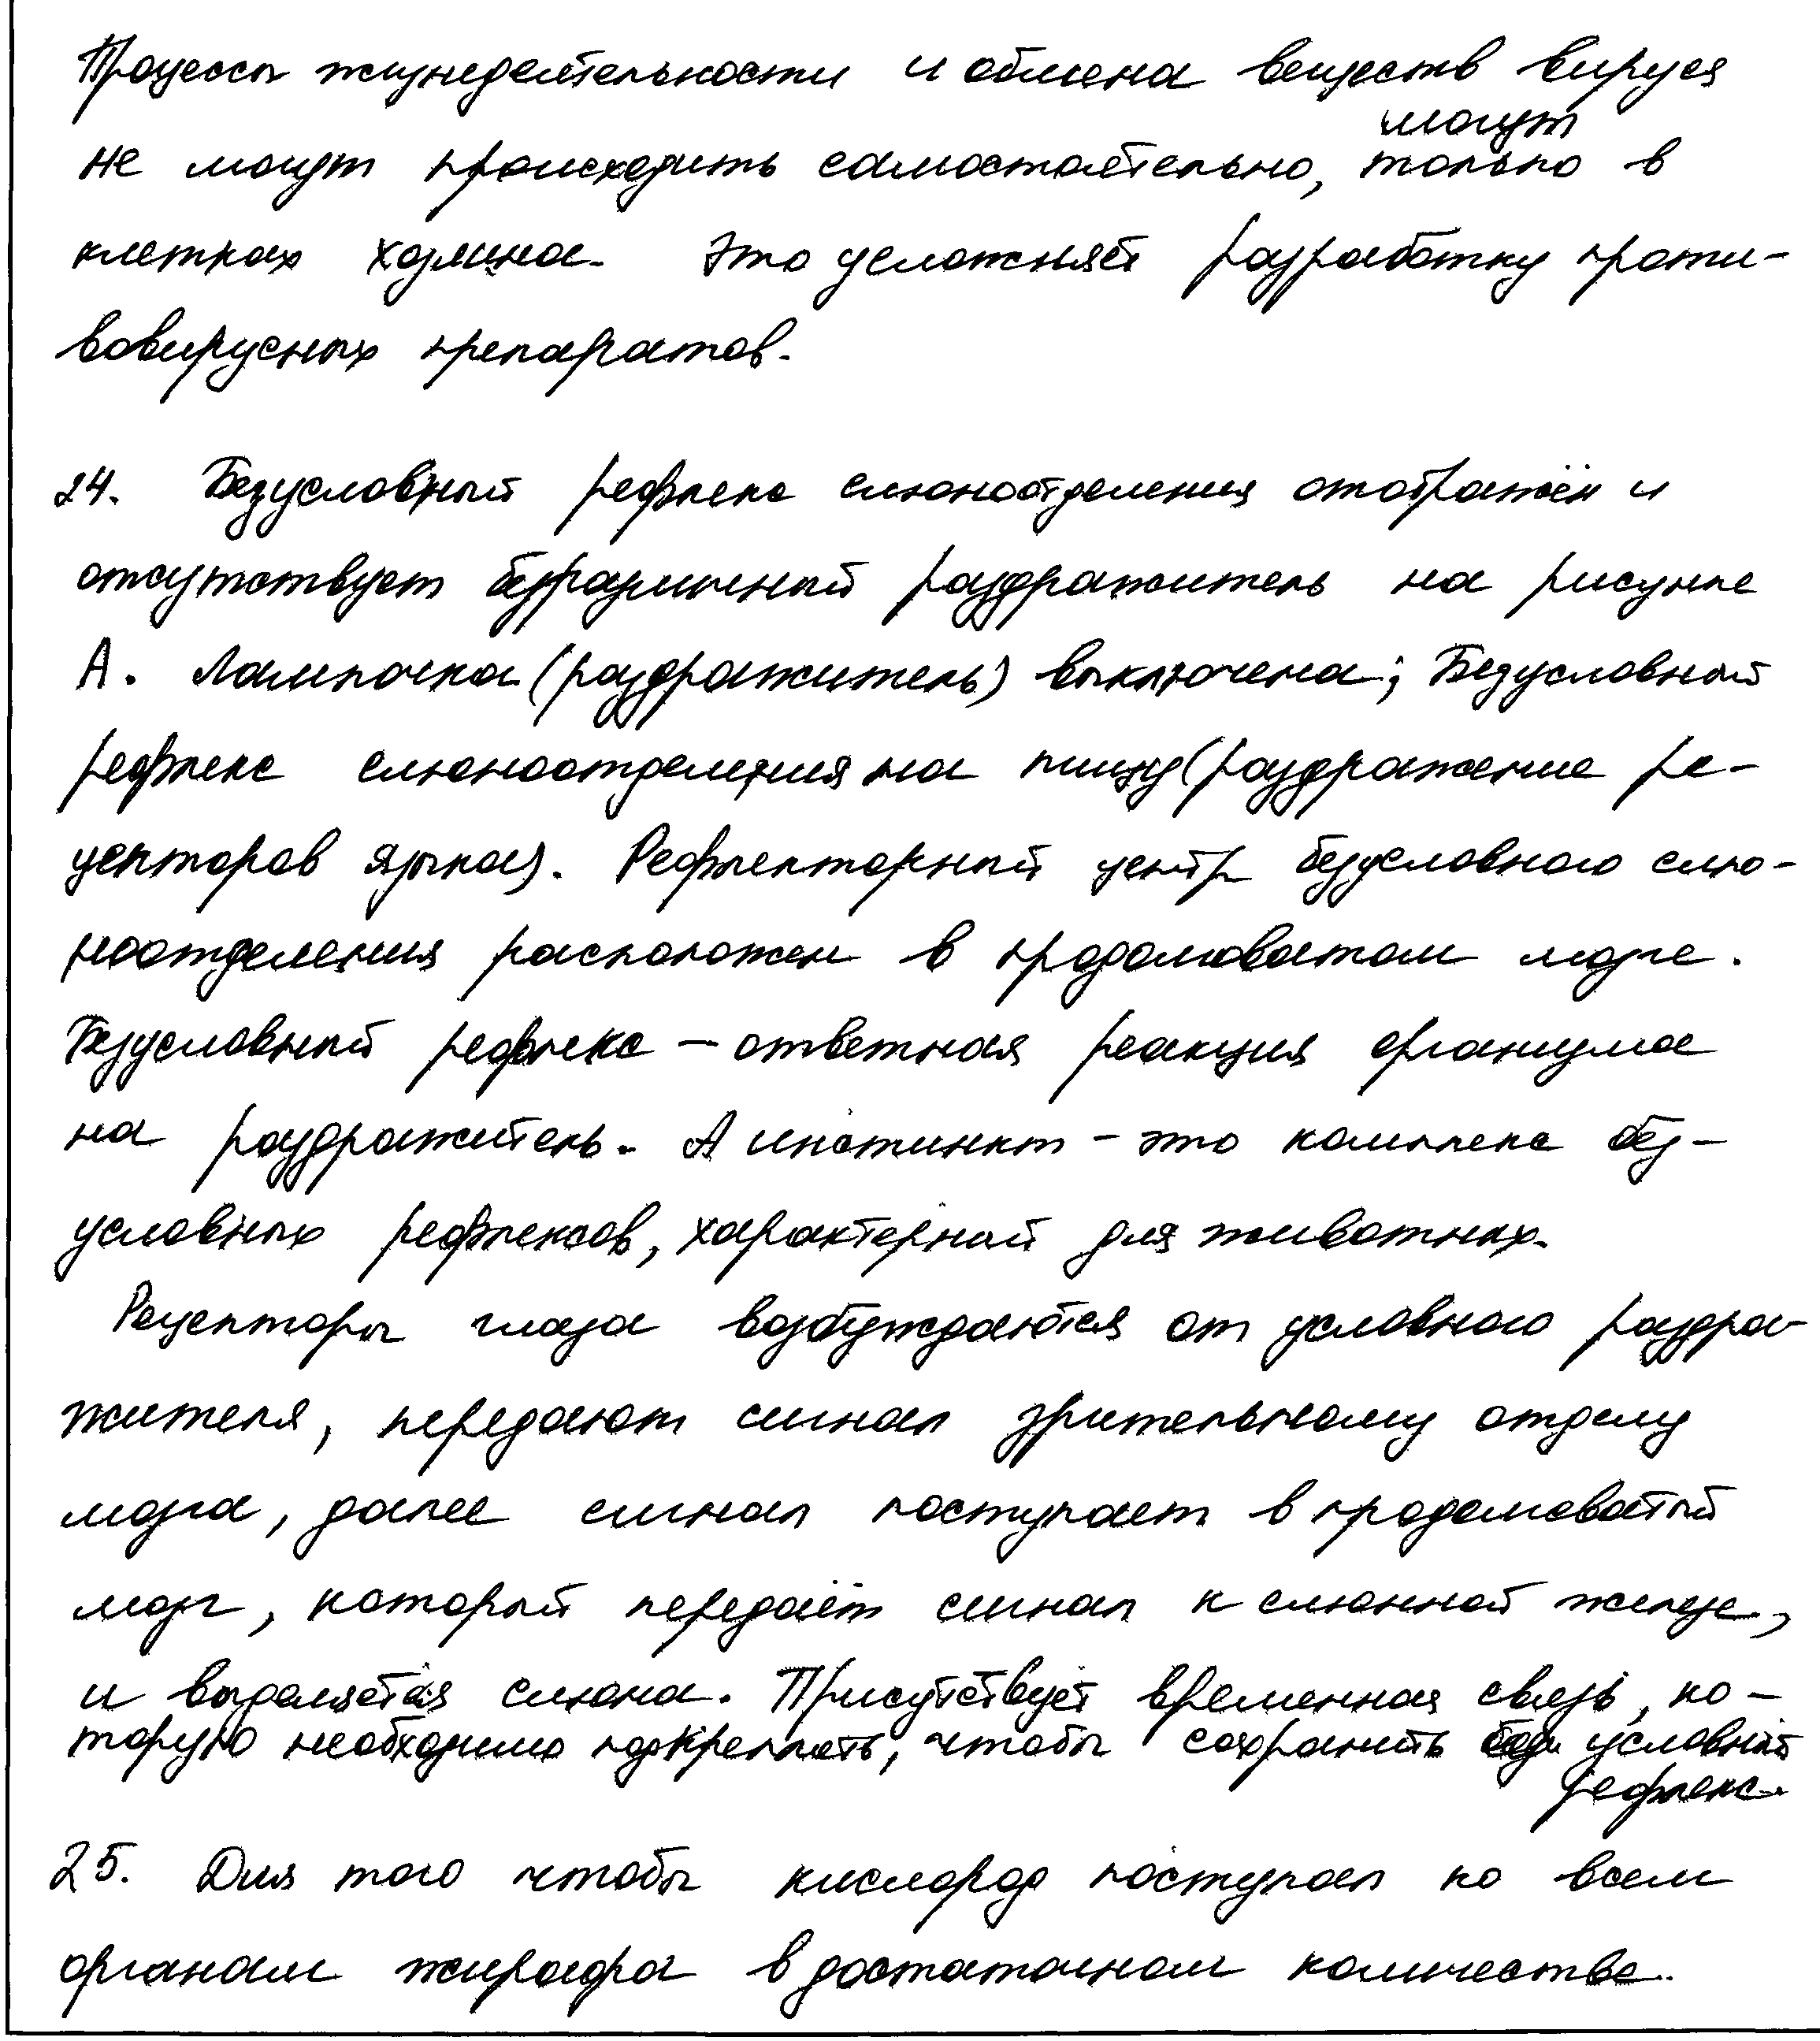 Процессы жизнедеятельности и обмена веществ вируса
могут
не могут происходить самостоятельно, только в
клетках хозяина. Это усложняет разработку проти-
вовирусных препаратов.
24. Безусловный рефлекс слюноотделения отображён и
отсутствует безразличный раздражитель на рисунке
А. Лампочка (раздражитель) выключена; Безусловный
рефлекс слюноотделения на пищу (раздражение ре-
цепторов языка). Рефлекторный центр безусловного слю-
ноотделения расположен в продолговатом мозге.
Безусловный рефлекс – ответная реакция организма
на раздражитель. А инстинкт – это комплекс без-
условных рефлексов, характерный для животных.
Рецепторы глаза возбуждаются от условного раздра-
жителя, передают сигнал зрительному отделу
мозга, далее сигнал поступает в продолговатый
мозг, который передаёт сигнал к слюнной железе,
и выделяется слюна. Присутствует временная связь, ко-
торую необходимо подкреплять, чтобы сохранить условный
рефлекс.
25. Для того чтобы кислород поступал ко всем
органам жирафа в достаточном количестве.